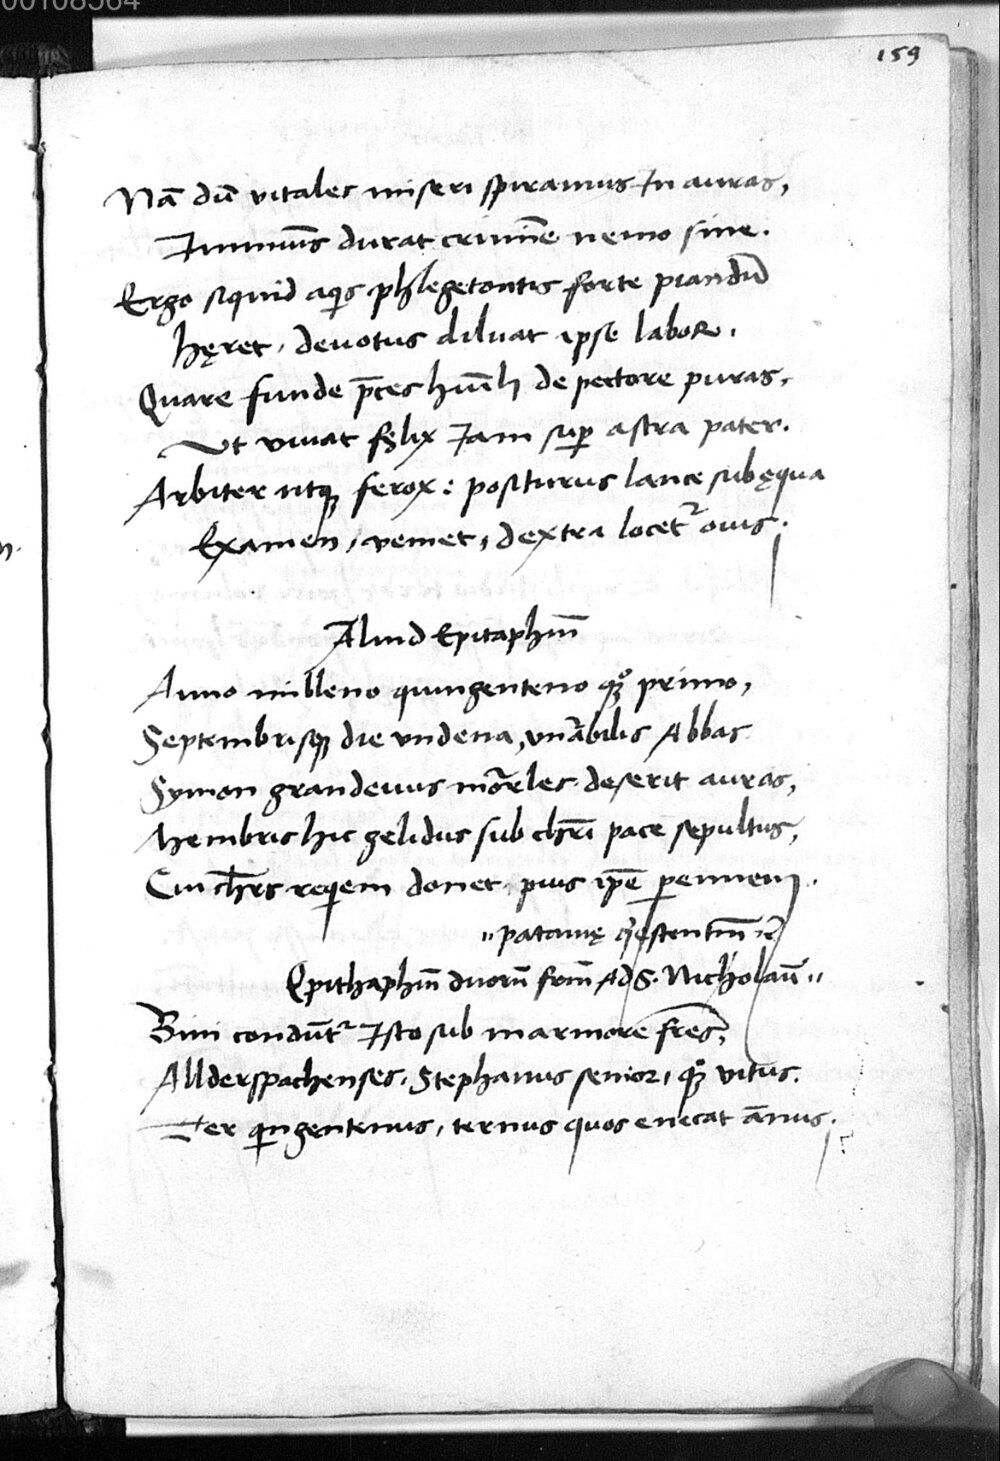 00108564
159
Nā dū vitales miseri spiramus In auras,
Immunis durat crimīe nemo sine.
Ergo siquid aqis phlegetontis forte piandū
hęret, deuotus diluat ipse labor.
Quare funde p̄ces humīli de pectore puras,
Ut viuat fęlix Iam sup astra pater.
Arbiter utqꝫ ferox: positurus lance sub ęqua
Examen, veniet, dextra locet᷑ ouis.
Aliud Epitaphiū
Anno milleno quingenteno qꝫ primo,
Septembrisqꝫ die vndena, vn̄abilis Abbas
Symon grandeuus mor̄les deserit auras,
Membris hic gelidus sub chrī pace sepultus,
Cui chr̄s reqiem donet pius ip̄e perennem.
Epithaphiū duorū frm̄ Ad S. Nicholaū
Bini condūt᷑ Isto sub marmore fr̄es,
Allderspachenses, Stephanus senior, qꝫ vitus.
Ter qingentenus, ternus quos enecat ānus.